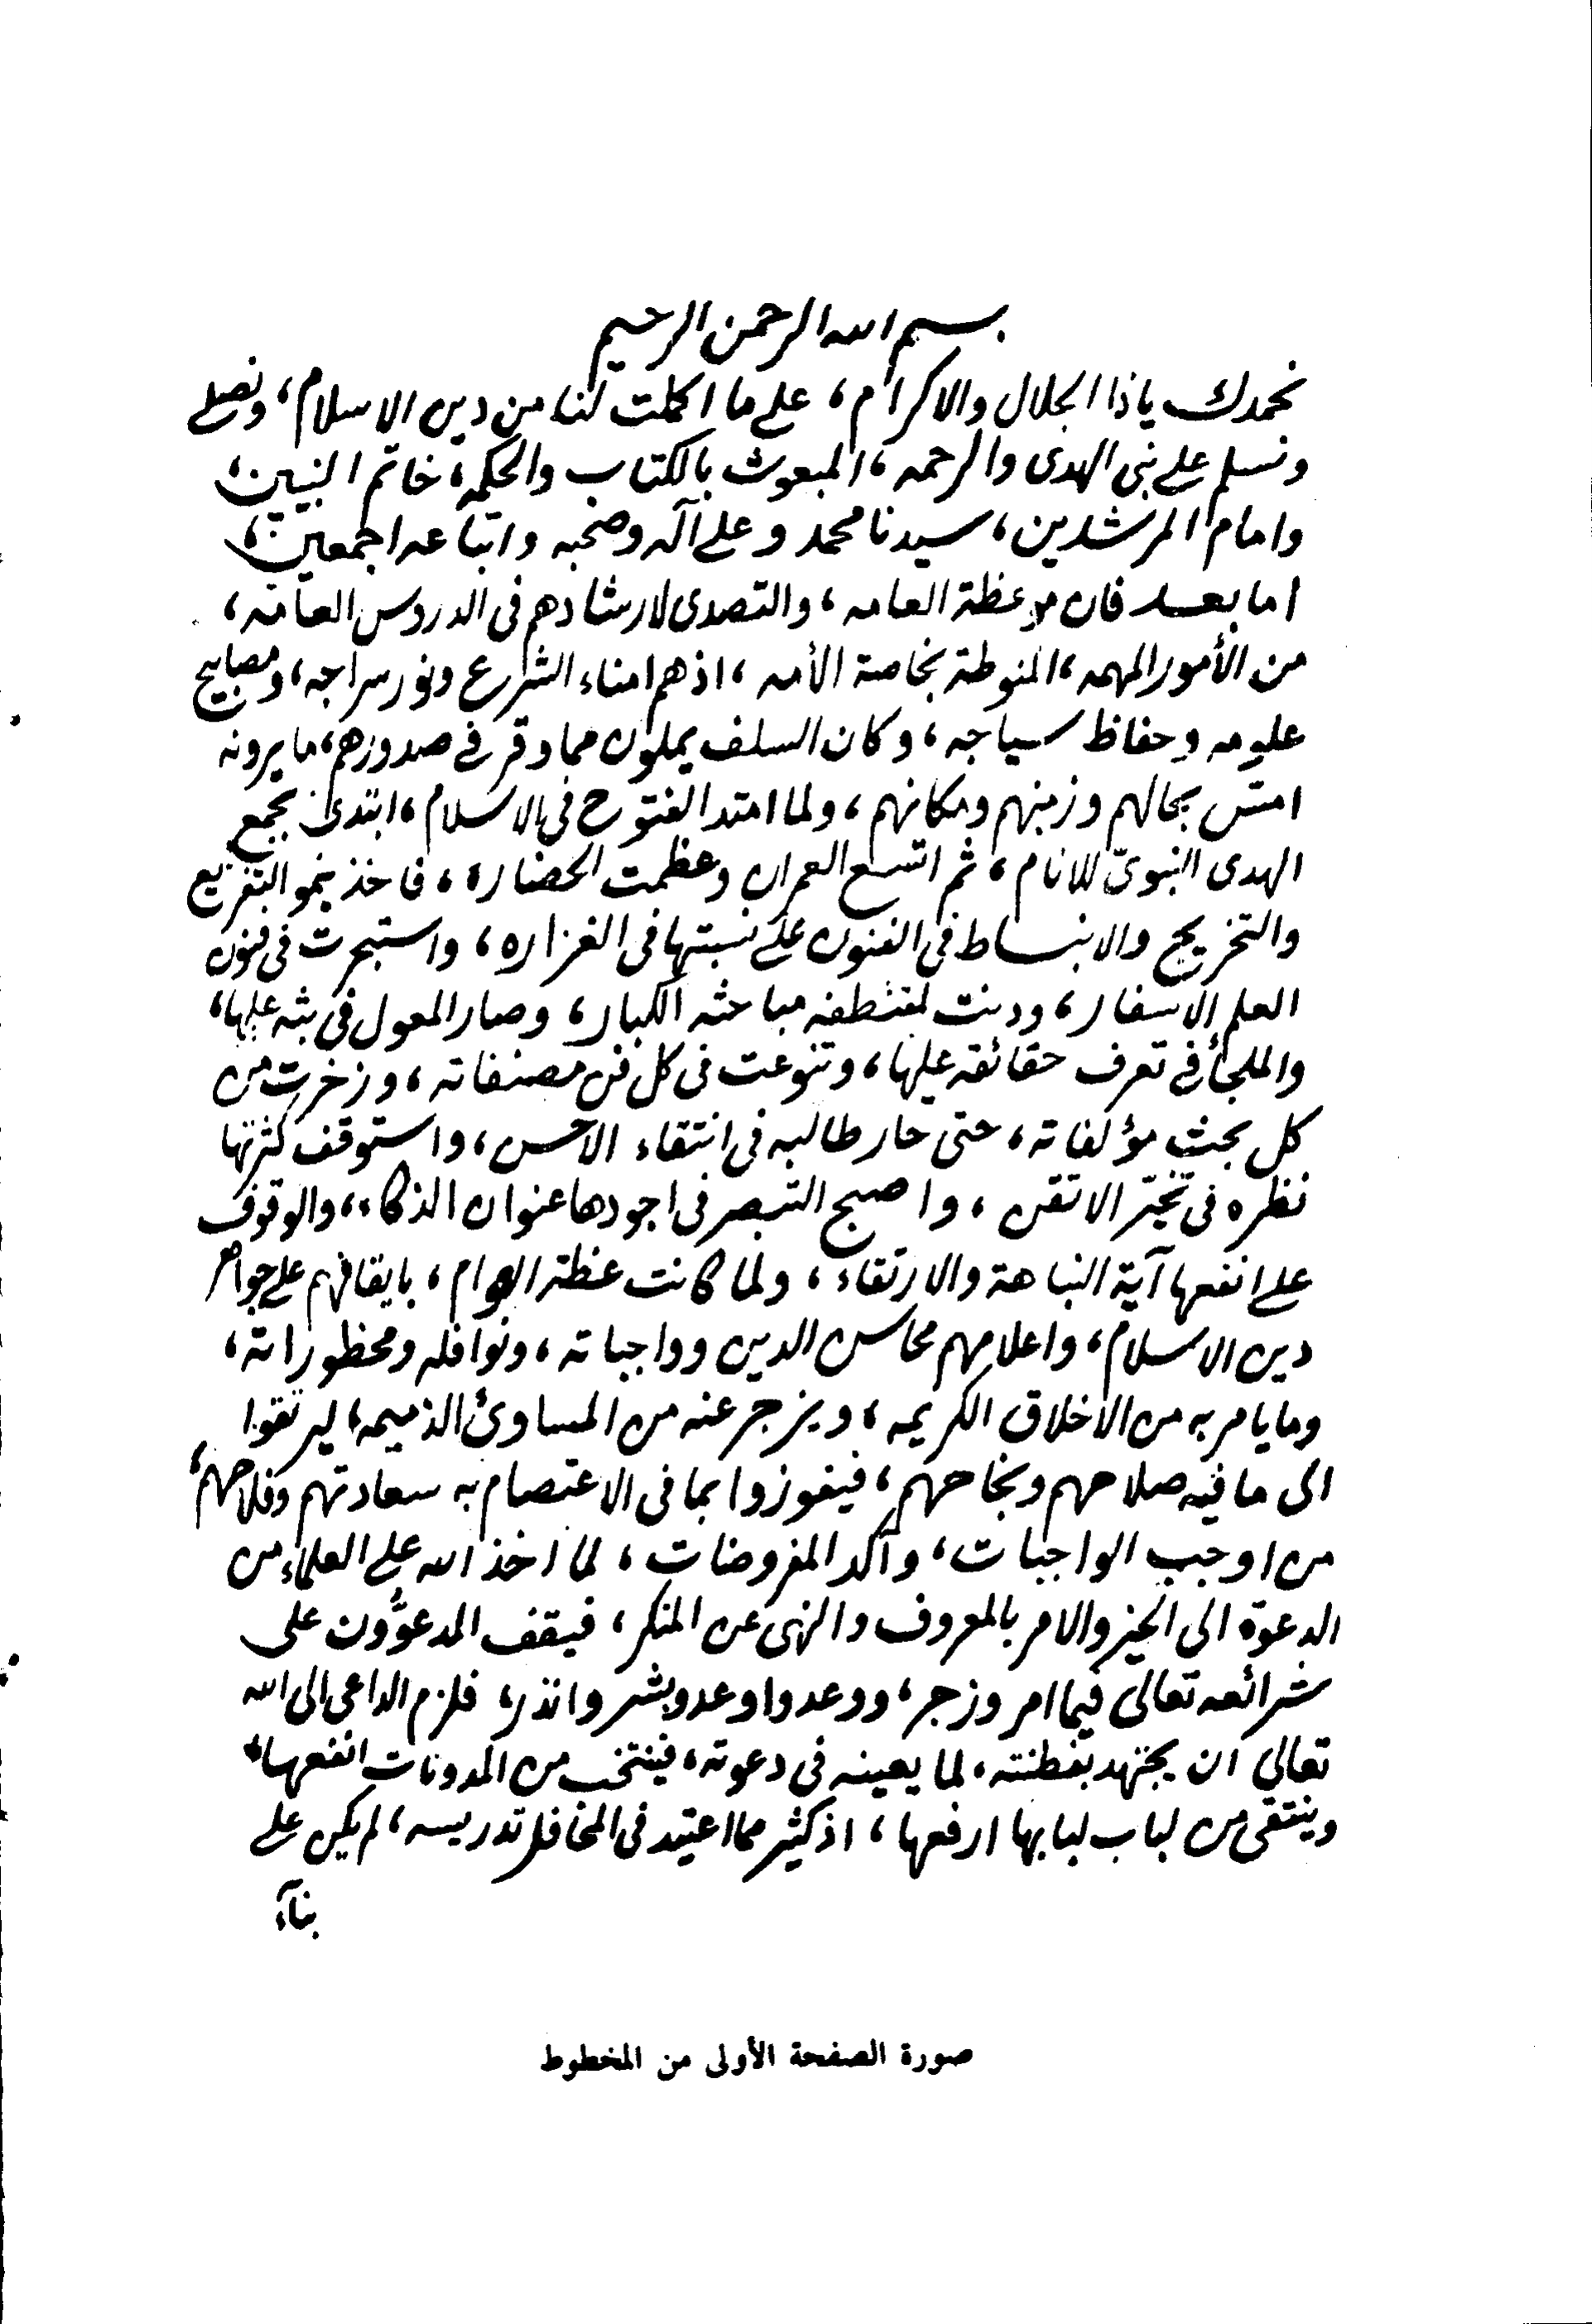 بسم الله الرحمن الرحيم
نحمدك ياذا الجلال والاكرام، على ما اكملت لنا من دين الاسلام، ونصلى
ونسلم على نبى الهدى والرحمه، المبعوث بالكتاب والحكمه، خاتم النبيين،
وامام المرشدين، سيدنا محمد وعلى آله وصحبه واتباعه اجمعين،
اما بعد فان موعظة العامه، والتصدى لارشادهم فى الدروس العامه،
من الأمور المهمه، المنوطة بخاصة الأمه، اذ هم امناء الشرع ونور سراجه، ومصابيح
علومه وحفاظ سياجه، وكان السلف يملون مما وقر فى صدورهم، ما يرونه
امسّ بحالهم وزمنهم ومكانهم، ولما امتد الفتوح فى الاسلام، ابتدئ بجمع
الهدى النبوىّ للانام، ثم اتسع العمران وعظمت الحضاره، فاخذ نحو التفريع
والتخريج والانبساط فى الفنون على نسبتها فى الغزاره، واستبحرت فى فنون
العلم الاسفار، ودنت لمقتطفه مباحثه الكبار، وصار المعول فى بثه عليها،
والملجأ فى تعرف حقائقه عليها، وتنوعت فى كل فن مصنفاته، وزخرت من
كل بحث مؤلفاته، حتى حار طالبه فى انتقاء الاحسن، واستوقف كثرتها
نظره فى تخيّر الاتقن، واصبح التبصر فى اجودها عنوان الذكاء، والوقوف
على انفعها آية النباهة والارتقاء، ولما كانت عظة العوام، بايقافهم على جواهر
دين الاسلام، واعلامهم محاسن الدين وواجباته، ونوافله ومحظوراته،
وما يامر به من الاخلاق الكريمه، ويزجر عنه من المساوئ الذميمه، ليرتقوا
الى ما فيه صلاحهم ونجاحهم، فيفوزوا بما فى الاعتصام به سعادتهم وفلاحهم،
من اوجب الواجبات، وآكد المفروضات، لما اخذ الله على العلماء من
الدعوة الى الخير والامر بالمعروف والنهى عن المنكر، فيقف المدعوّون على
شرائعه تعالى فيما امر وزجر، ووعد واوعد وبشر وانذر، فلزم الداعى الى الله
تعالى ان يجتهد بفطنته، لما يعينه فى دعوته، فينتخب من المدونات انفعها،
وينتقى من لباب لبابها ارفعها، اذ كثير مما اعتيد فى المحافل تدريسه، لم يكن على
بنآء
صورة الصفحة الأولى من المخطوط